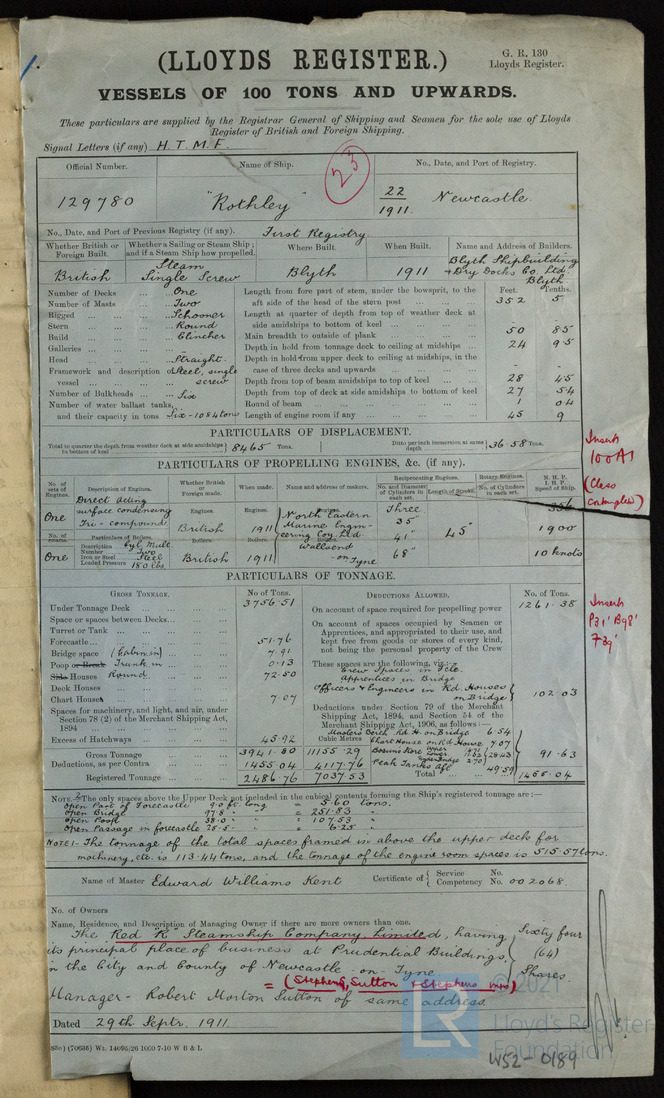 1.
(LLOYDS REGISTER.)
G. R. 130
Lloyds Register.
VESSELS OF 100 TONS AND UPWARDS.
These particulars are supplied by the Registrar General of Shipping and Seamen for the sole use of Lloyds
Register of British and Foreign Shipping.
Signal Letters (if any) H.T.M.F.
Official Number. Name of Ship. No., Date, and Port of Registry.
23
129780 "Rothley" 22/1911. Newcastle.
No., Date, and Port of Previous Registry (if any). First Registry
Whether British or Foreign Built. Whether a Sailing or Steam Ship; and if a Steam Ship how propelled. Where Built. When Built. Name and Address of Builders.
British Steam Single Screw Blyth 1911 Blyth Shipbuilding + Dry Docks Co. Ltd. Blyth
Feet. Tenths.
Number of Decks One
Number of Masts Two
Rigged Schooner
Stern Round
Build Clincher
Galleries -
Head Straight.
Framework and description of vessel Steel, single screw
Number of Bulkheads Six
Number of water ballast tanks, and their capacity in tons Six - 1084 tons
Length from fore part of stem, under the bowsprit, to the aft side of the head of the stern post 352 5
Length at quarter of depth from top of weather deck at side amidships to bottom of keel
Main breadth to outside of plank 50 85
Depth in hold from tonnage deck to ceiling at midships 24 95
Depth in hold from upper deck to ceiling at midships, in the case of three decks and upwards - -
Depth from top of beam amidships to top of keel 28 45
Depth from top of deck at side amidships to bottom of keel 27 54
Round of beam 1 04
Length of engine room if any 45 9
PARTICULARS OF DISPLACEMENT.
Total to quarter the depth from weather deck at side amidships to bottom of keel 8465 Tons. Ditto per inch immersion at same depth 36.58 Tons.
Insert 100A1 (Class Contemplated)
PARTICULARS OF PROPELLING ENGINES, &c. (if any).
No. of sets of Engines. Description of Engines. Whether British or Foreign made. When made. Name and address of makers. Reciprocating Engines. No. and Diameter of Cylinders in each set. Length of Stroke. Rotary Engines. No. of Cylinders in each set. N. H. P. I. H. P. Speed of Ship.
One Direct acting surface condensing Tri-compound Engines. British Engines. 1911 Engines. North Eastern Marine Engineering Coy. Ltd. Three 35" 41" 68" 45" 1900
Particulars of Boilers.
One Description Cyl. Mult. Number Two Iron or Steel Steel Loaded Pressure 180 lbs. Boilers. British Boilers. 1911 Boilers. Wallsend-on-Tyne 10 knots
PARTICULARS OF TONNAGE.
GROSS TONNAGE. No. of Tons. DEDUCTIONS ALLOWED. No. of Tons.
Under Tonnage Deck 3756.51
Space or spaces between Decks
Turret or Tank
Forecastle 51.76
Bridge space (Cabin in) 7.91
Poop or Break Trunk in 0.13
Side Houses Round 72.50
Deck Houses
Chart House 7.07
Spaces for machinery, and light, and air, under Section 78 (2) of the Merchant Shipping Act, 1894
Excess of Hatchways 45.92
On account of space required for propelling power 1261.38
On account of spaces occupied by Seamen or Apprentices, and appropriated to their use, and kept free from goods or stores of every kind, not being the personal property of the Crew
These spaces are the following, viz.:-
Crew Spaces in Fcle. Apprentices in Bridge Officers & Engineers in Rd. Houses on Bridge 102.03
Deductions under Section 79 of the Merchant Shipping Act, 1894, and Section 54 of the Merchant Shipping Act, 1906, as follows:-
Masters Berth Rd. H. on Bridge 6.54
Chart House on Rd. House 7.07
Peak Tanks Aft 49.59
91.63
Cubic Metres
Gross Tonnage 3941.80 11155.29
Deductions, as per Contra 1455.04 4117.76
Registered Tonnage 2486.76 7037.53
Total 1455.04
Insert P31' B98' F39'
NOTE 2:- The only spaces above the Upper Deck not included in the cubical contents forming the Ship's registered tonnage are:-
Open Part of Forecastle 9.0 ft. long = 5.60 tons.
Open Bridge 97.8 " " = 251.83 "
Open Poop 38.0 " " = 107.53 "
Open Passage in forecastle 25.5 " = 6.25 "
NOTE 1 - The tonnage of the total spaces framed in above the upper deck for
machinery, etc. is 113.44 tons, and the tonnage of the engine room spaces is 515.57 tons.
Name of Master Edward Williams Kent Certificate of { Service No. Competency No. 002068.
No. of Owners
Name, Residence, and Description of Managing Owner if there are more owners than one.
The Red "R" Steamship Company Limited, having Sixty four
its principal place of business at Prudential Buildings, (64)
in the City and County of Newcastle-on-Tyne Shares.
= (Stephens, Sutton & Stephens mrs)
Manager - Robert Morton Sutton of same address.
Dated 29th Septr. 1911.
(70635) Wt. 14095/26 1000 7-10 W B & L
© 2021
LR
Lloyd's Register
Foundation
W52-0189